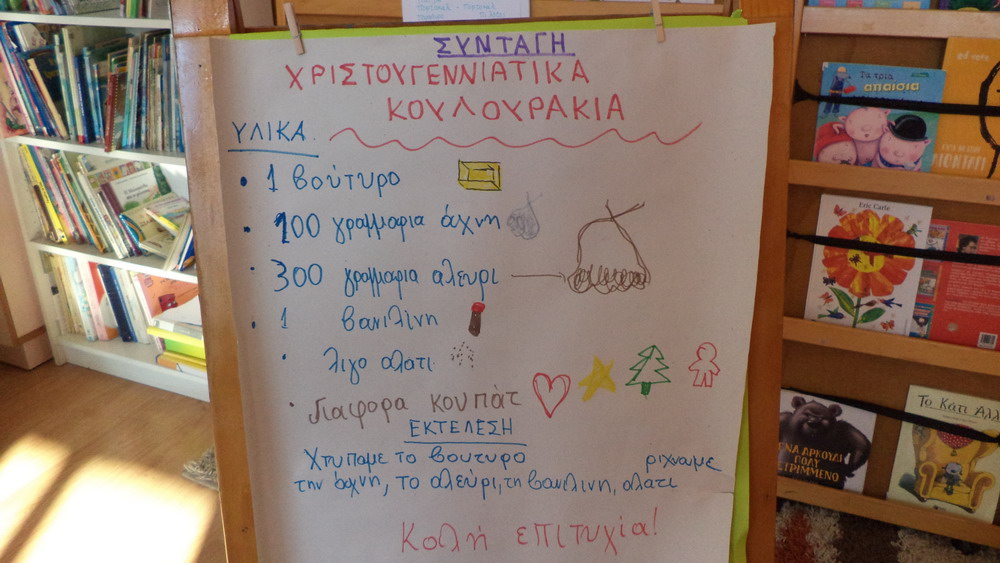 ΣΥΝΤΑΓΗ
ΧΡΙΣΤΟΥΓΕΝΝΙΑΤΙΚΑ
ΚΟΥΛΟΥΡΑΚΙΑ
ΥΛΙΚΑ
• 1 βούτυρο
• 100 γραμμαρια άχνη
• 300 γραμμαρια αλευρι
• 1 βανιλίνη
• λιγο αλατι
• Διαφορα κουπάτ
ΕΚΤΕΛΕΣΗ
Χτυπαμε το βουτυρο ριχναμε
την άχνη, το αλεύρι, τη βανιλινη, αλατι
Καλή επιτυχία!
Τα τρία
απαίσια
Eric Carle
ΕΝΑ ΑΡΚΟΥΔΙ
ΠΟΛΥ
ΤΡΙΜΜΕΝΟ
Το Κάτι Άλλ